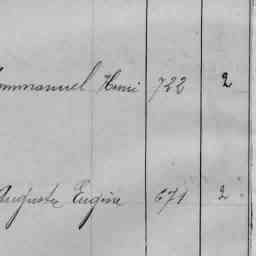 Emmanuel Henri 722 2
Auguste Eugène 671 2